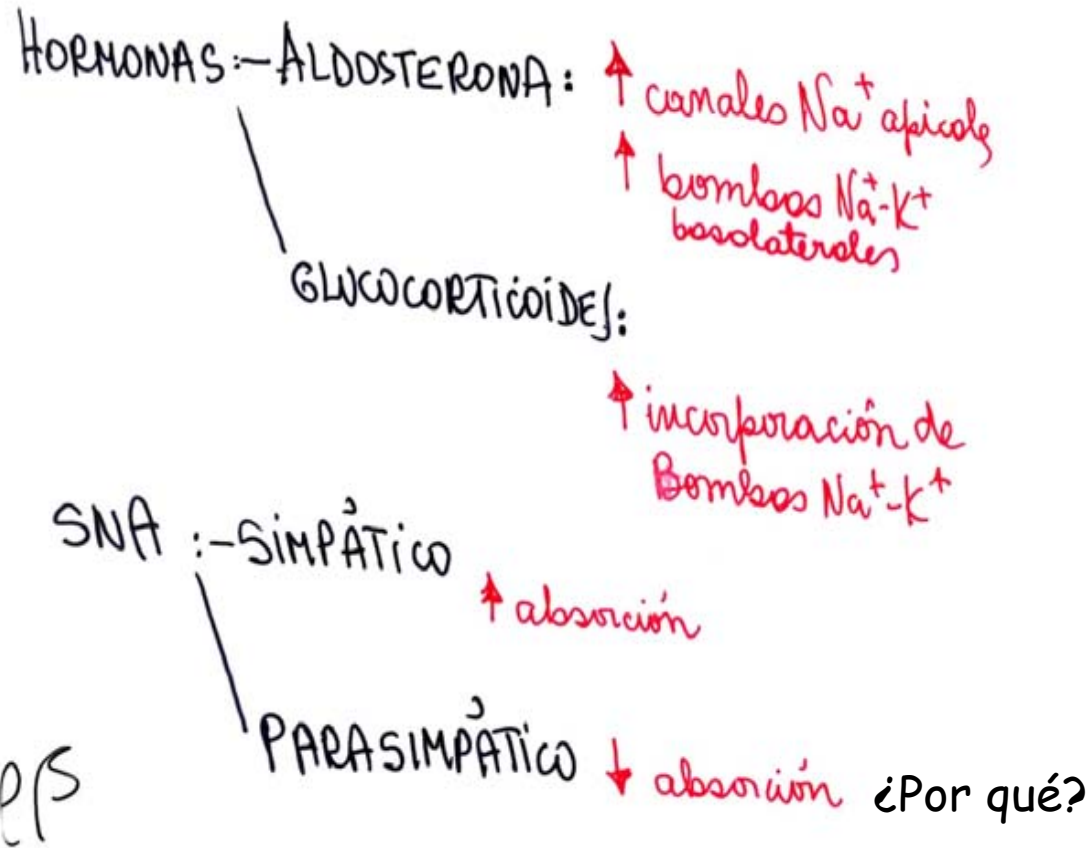 HORMONAS:-ALDOSTERONA: ↑ canales Na⁺ apicales
↑ bombas Na⁺-K⁺
basolaterales
GLUCOCORTICOIDES:
↑ incorporación de
Bombas Na⁺-K⁺
SNA :-SIMPÁTICO
↑ absorción
PARASIMPÁTICO ↓ absorción ¿Por qué?